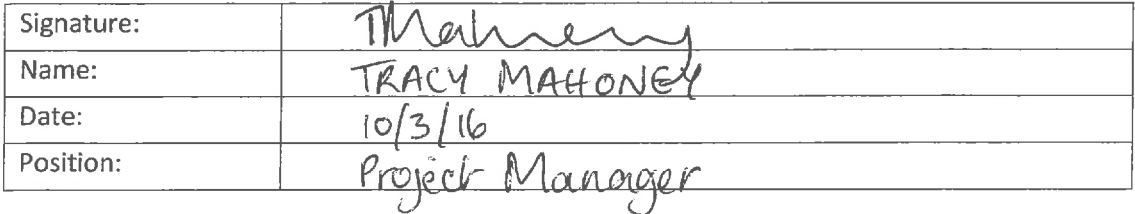 Signature: TMahoney
Name: TRACY MAHONEY
Date: 10/3/16
Position: Project Manager